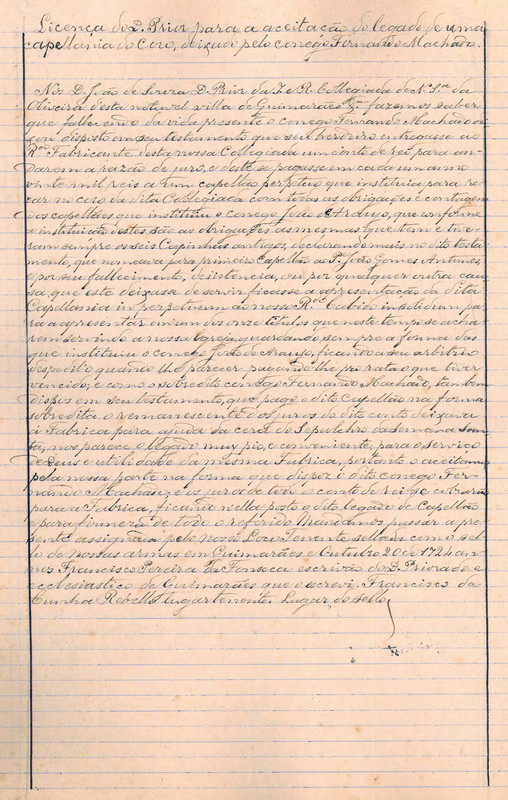 Licença do D. Prior para a aceitação do legado de uma
capellania do Coro, deixado pelo conego Fernando Machado.
Nós D. João de Souza D. Prior da I. e R. Collegiada de N. Sra. da
Oliveira d'esta notavel villa de Guimarães &ª fazemos saber
que fallecendo da vida presente o conego Fernando Machado dei
xou disposto em seu testamento que seu herdeiro entregasse ao
Rdo Fabricante desta nossa Collegiada um conto de reis para an-
darem a razão de juro, e deste se pagasse em cada um anno
vinte mil reis a um capellão perpetuo que instituia para re
zar no coro da dita Collegiada com todas as obrigações e contagem
dos capellães que instituiu o conego João d'Araujo, que conforme
a instituição destes são as obrigações as mesmas que tem e tive-
ram sempre os seis Capinhas antigos, declarando mais no dito testa-
mento, que nomeava para primeiro Capellão ao Pe. João Gomes Antunes,
e por seu fallecimento, desistencia, ou por qualquer outra cau
sa, que este deixasse de servir ficasse a apresentação da dita
Capellania in perpetuum ao nosso Rdo Cabido in solidum pa
ra a apresentar em um dos onze titulos que neste tempo se acha
rem servindo a nossa Igreja guardando sempre a forma das
que instituiu o conego João de Araujo, ficando a seu arbitrio
despedil-o quando lhe parecer pagando-lhe pro rata o que tiver
vencido; e como o sobredito conego Fernando Machado, tambem
dispos em seu testamento, que pago o dito Capellão na forma
sobredita o remanescente dos juros do dito conto deixava
á Fabrica para ajuda da cera do Sepulchro da Semana San
ta, nos parece o legado muy pio, e conveniente, para o serviço
de Deus e utilidade da mesma Fabrica, portanto o aceitamos
pela nossa parte na forma que dispoz o dito conego Fer-
nando Machado, e os juros de todo o conto de reis se cobrarão
para a Fabrica, ficando nella posto o dito legado de Capellão
e para firmeza de todo o referido Mandamos passar a pre
sente assignada pelo nosso Loco Tenente sellada com o sel
lo de nossas armas em Guimarães e Outubro 20 de 1724 an
nos Francisco Pereira da Fonseca escrivão do D. Priorado, e
ecclesiastico de Guimarães que o escrevi. Francisco da
Cunha Rebello lugartenente. Lugar do sello